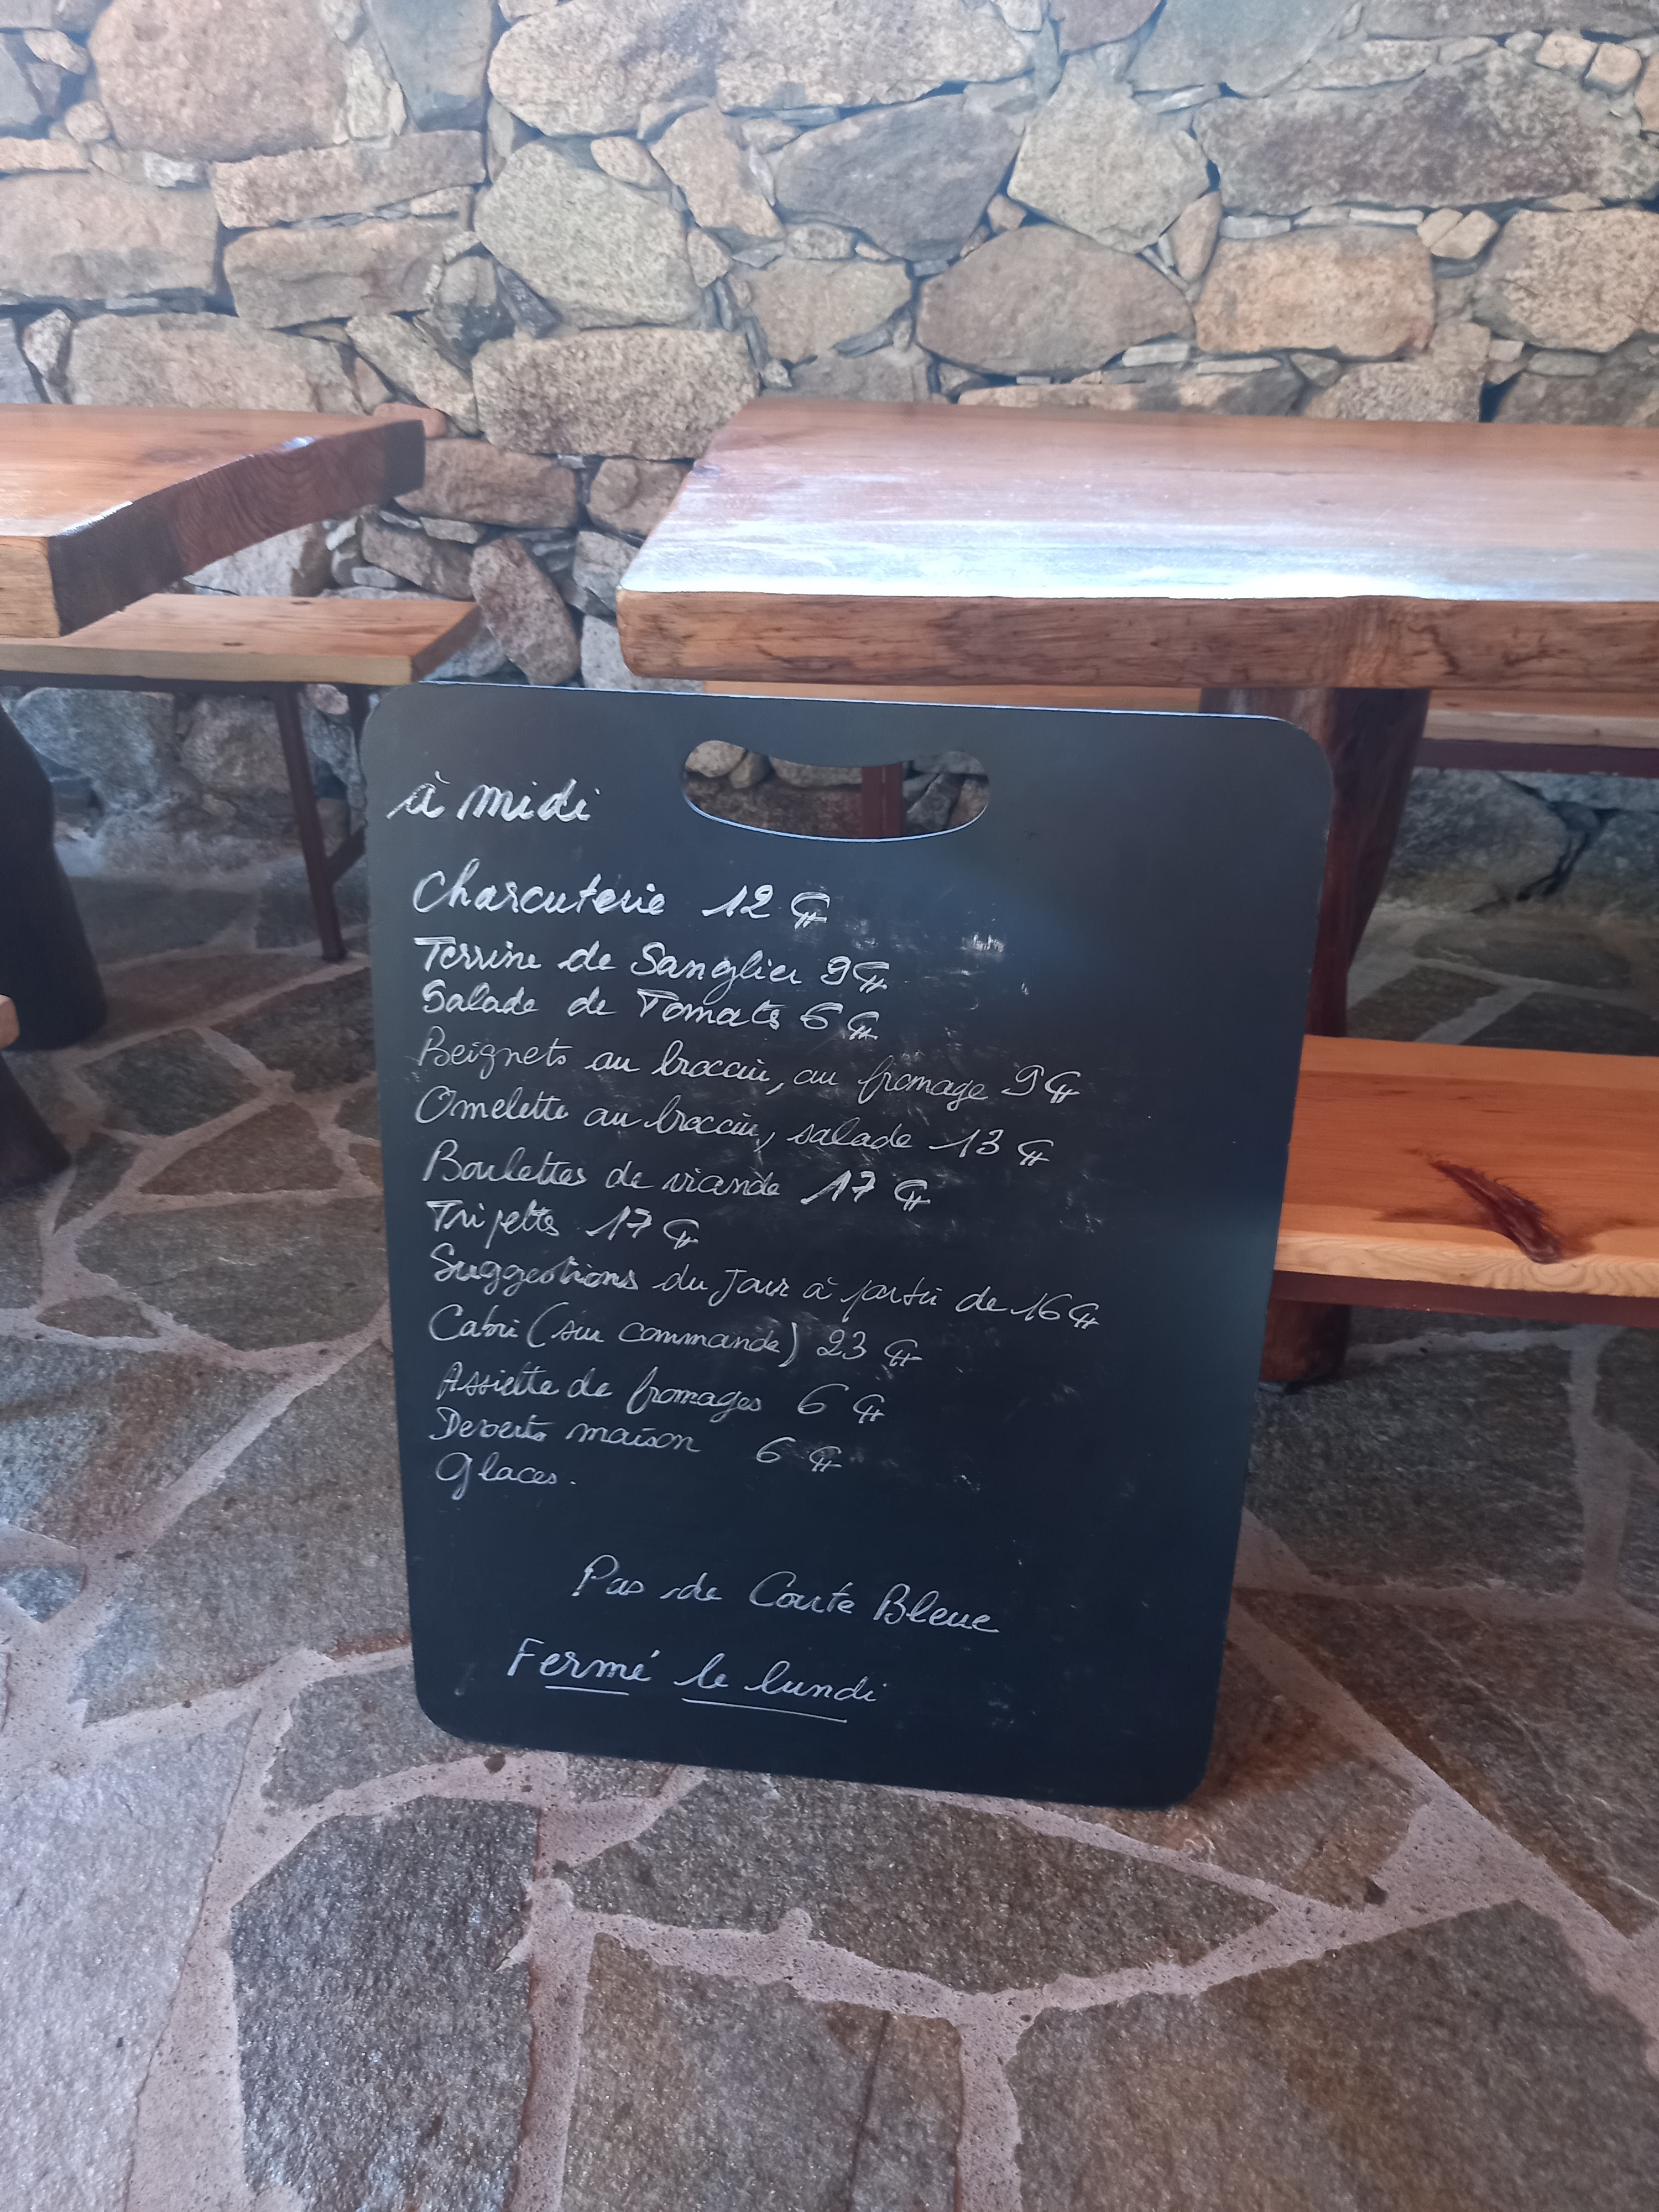 à midi
Charcuterie 12 €
Terrine de Sanglier 9 €
Salade de Tomates 6 €
Beignets au brocciu, au fromage 9 €
Omelette au brocciu, salade 13 €
Boulettes de viande 17 €
Tripettes 17 €
Suggestions du Jour à partir de 16 €
Cabri (sur commande) 23 €
Assiette de fromages 6 €
Desserts maison 6 €
Glaces.
Pas de Carte Bleue
Fermé le lundi